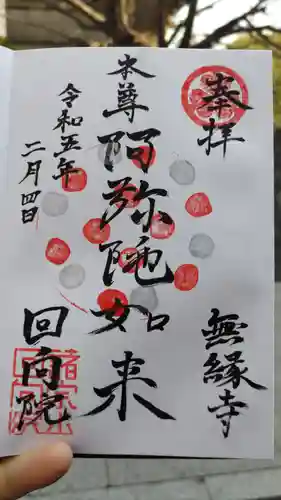 奉拝
本尊
阿弥陀如来
無縁寺
回向院
令和五年
二月四日